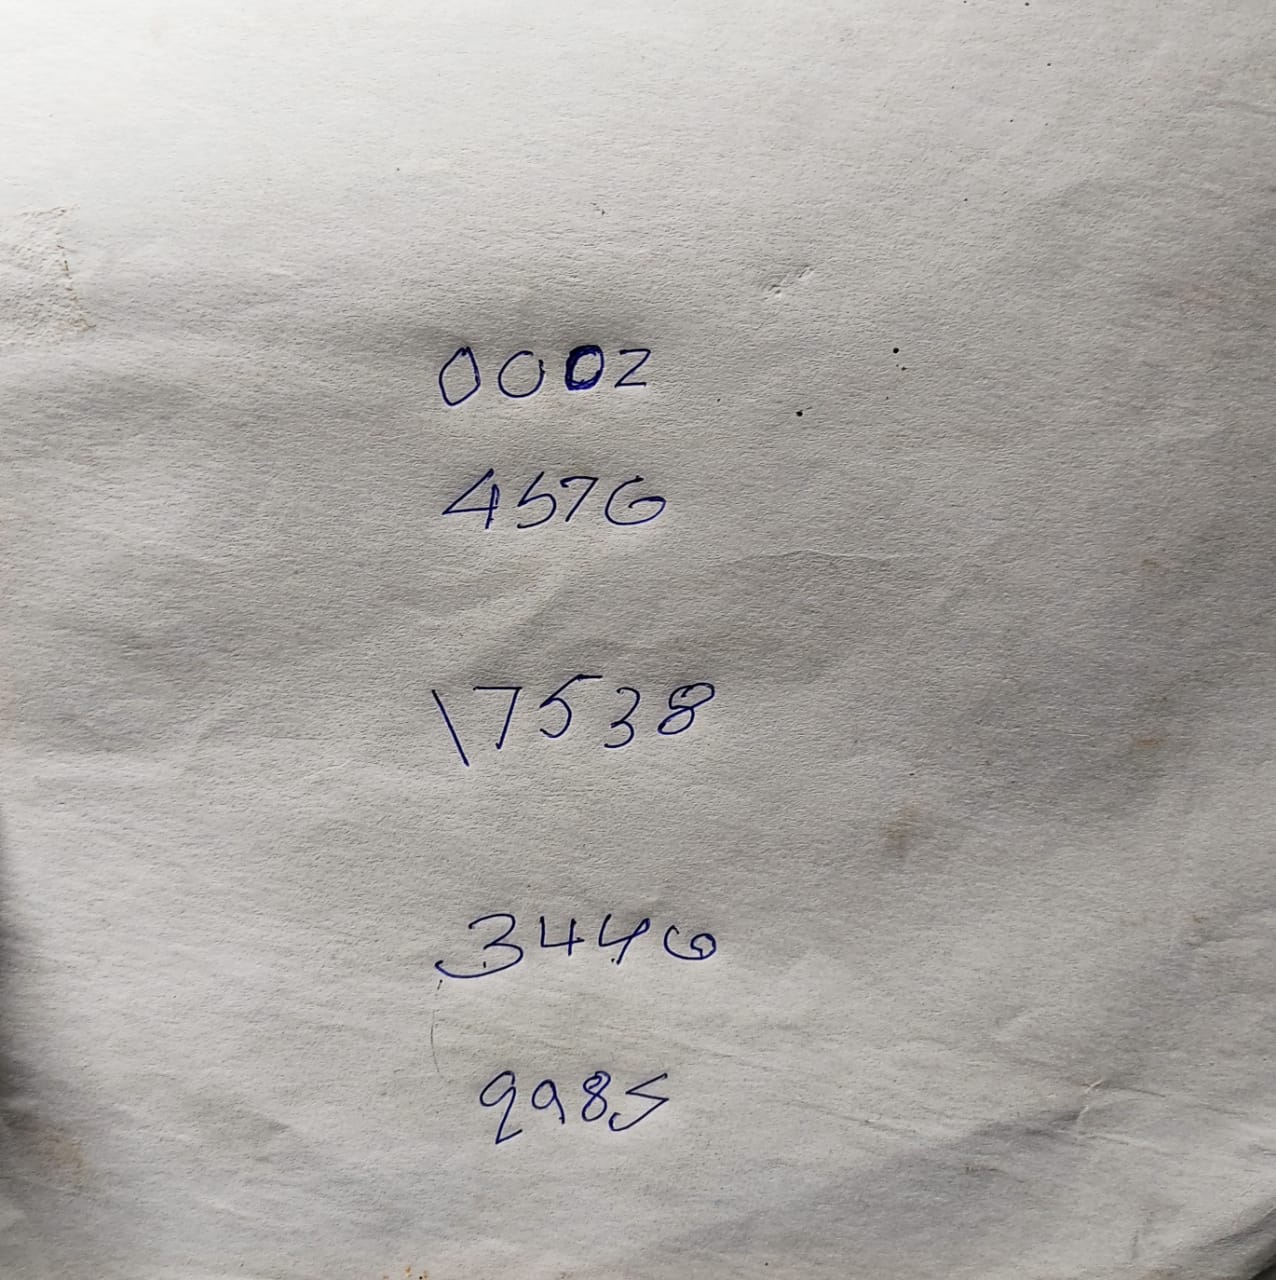 0002
4576
17538
3446
9985